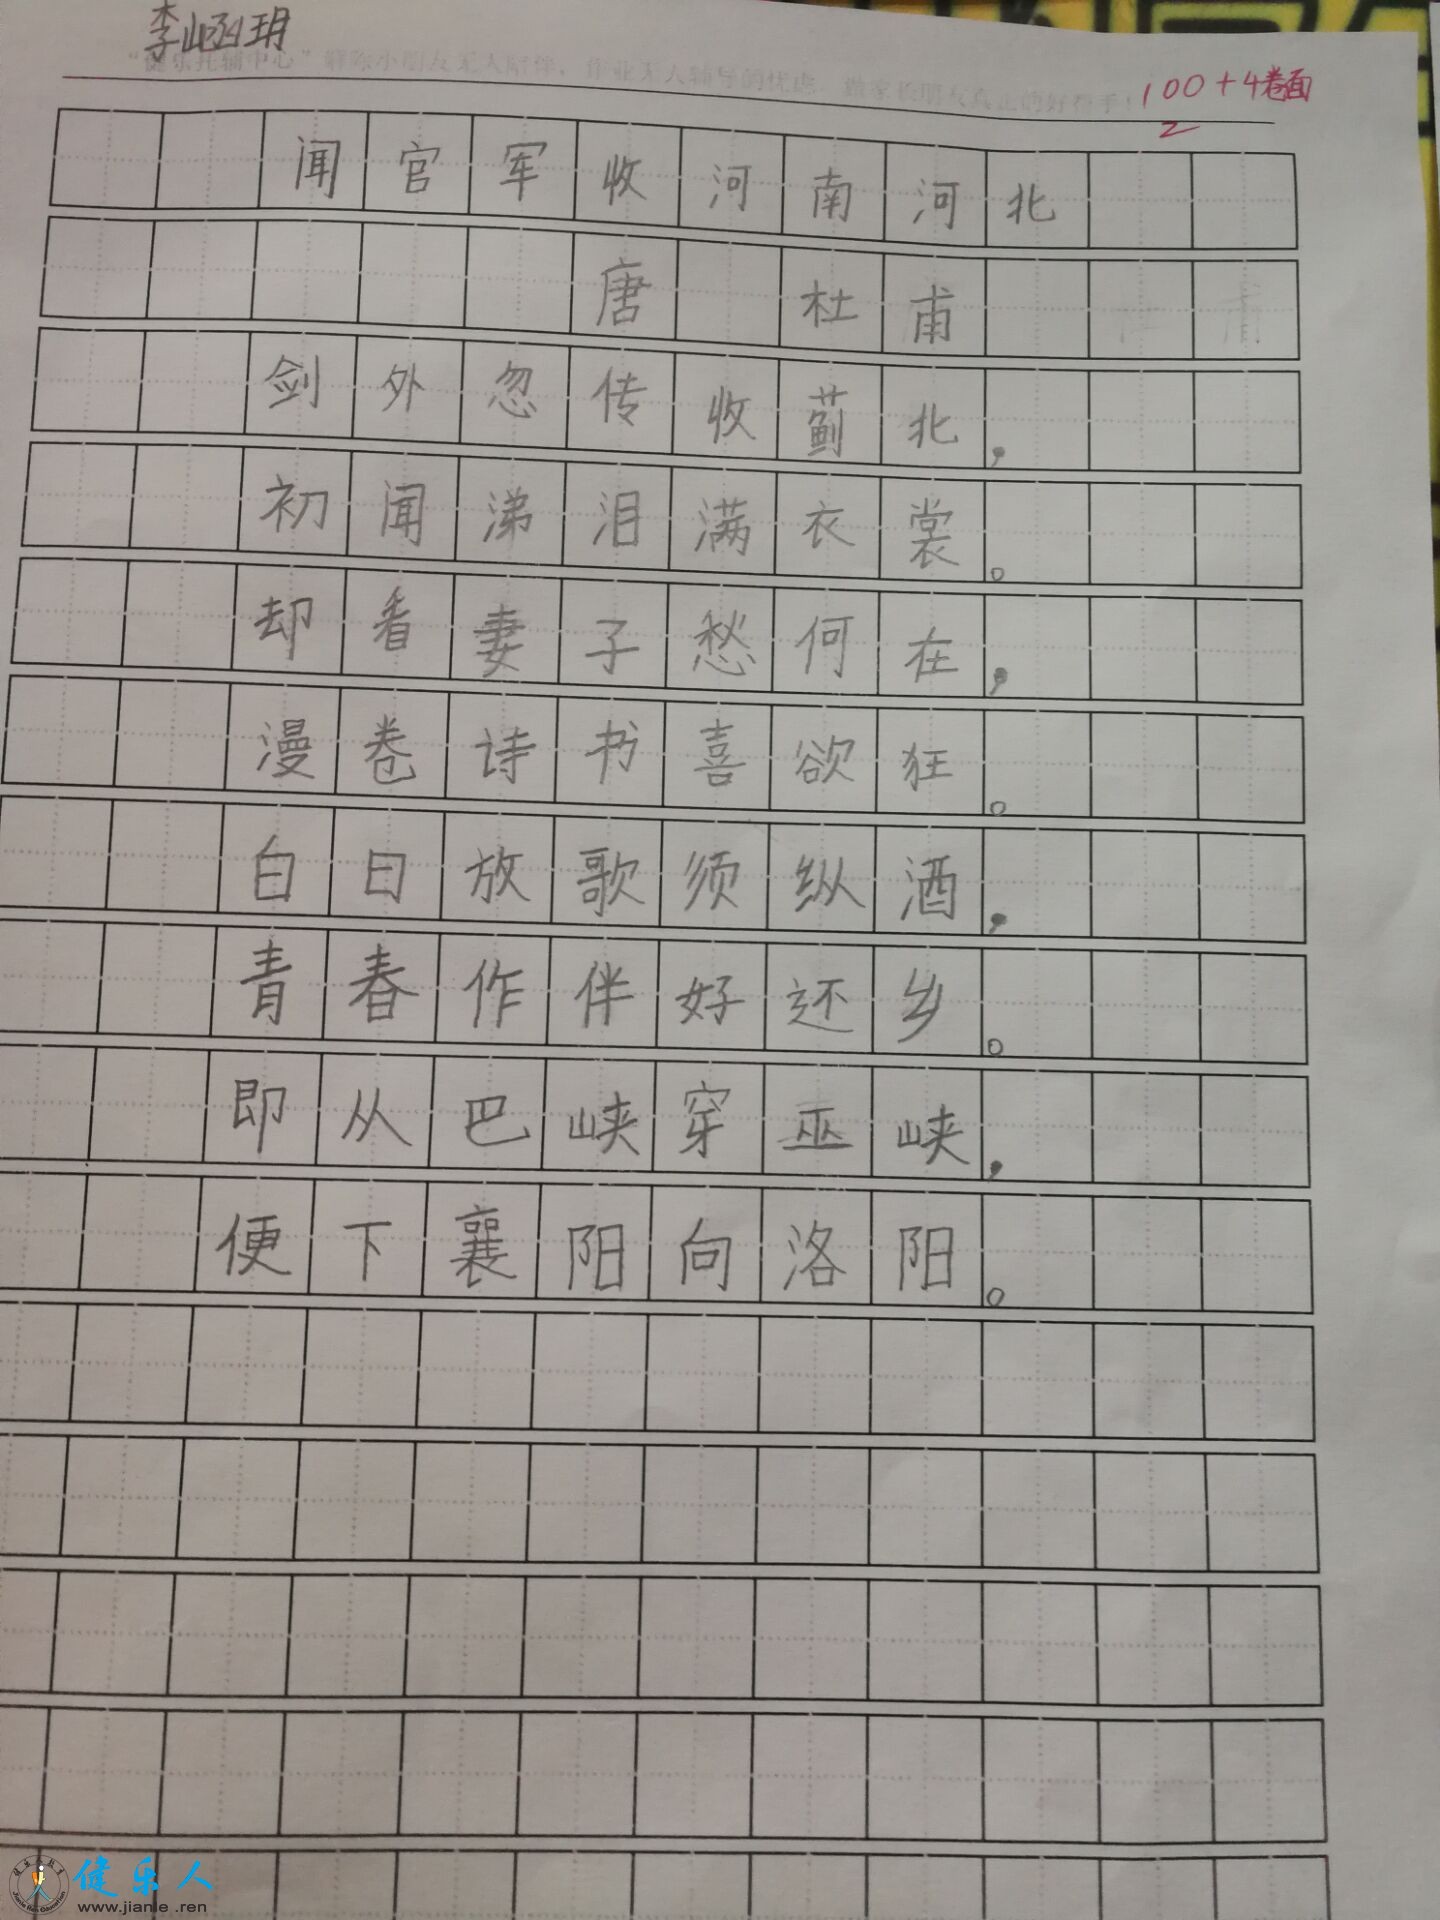 李崡玥
"健乐托辅中心"解除小朋友无人陪伴，作业无人辅导的忧虑，做家长朋友真正的好帮手！
100+4卷面
闻官军收河南河北
唐 杜甫
剑外忽传收蓟北，
初闻涕泪满衣裳。
却看妻子愁何在，
漫卷诗书喜欲狂。
白日放歌须纵酒，
青春作伴好还乡。
即从巴峡穿巫峡，
便下襄阳向洛阳。
健乐人
www.jianle.ren